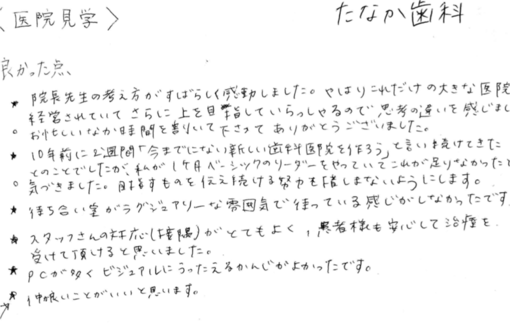 〈医院見学〉
たなか歯科
良かった点、
★ 院長先生の考え方がすばらしく感動しました。やはりこれだけの大きな医院
経営されていて さらに上を目指していらっしゃるので 思考の違いを感じまし
お忙しいなか時間を割いて下さって ありがとうございました。
★ 10年前に2週間「今までにない新しい歯科医院を作ろう」と言い続けてきた
とのことでしたが、私が1ヶ月ベーシックのリーダーをやっていてこれが足りなかったと
気づきました。目指すものを伝え続ける努力を惜しまないようにします。
★ 待ち合い室がラグジュアリーな雰囲気で待っている感じがしなかったです
★ スタッフさんの対応(接遇)がとてもよく、患者様も安心して治療を
受けて頂けると思いました。
★ PCが多く ビジュアルにうったえるかんじがよかったです。
★ 仲良いことがいいと思います。